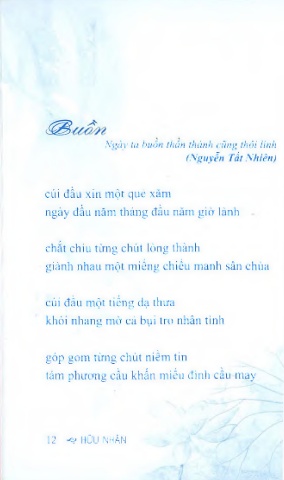 Buồn
Ngày ta buồn thần thánh cũng thôi linh
(Nguyễn Tất Nhiên)
cúi đầu xin một quẻ xăm
ngày đầu năm tháng đầu năm giờ lành
chắt chiu từng chút lòng thành
giành nhau một miếng chiếu manh sân chùa
cúi đầu một tiếng dạ thưa
khói nhang mờ cả bụi tro nhân tình
góp gom từng chút niềm tin
tám phương cầu khấn miếu đình cầu may
12 HỮU NHÂN